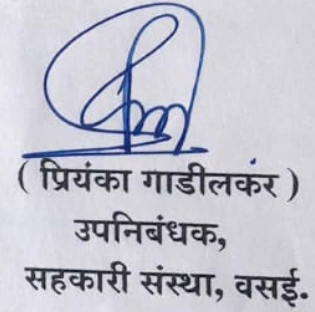 ( प्रियंका गाडीलकर )
उपनिबंधक,
सहकारी संस्था, वसई.